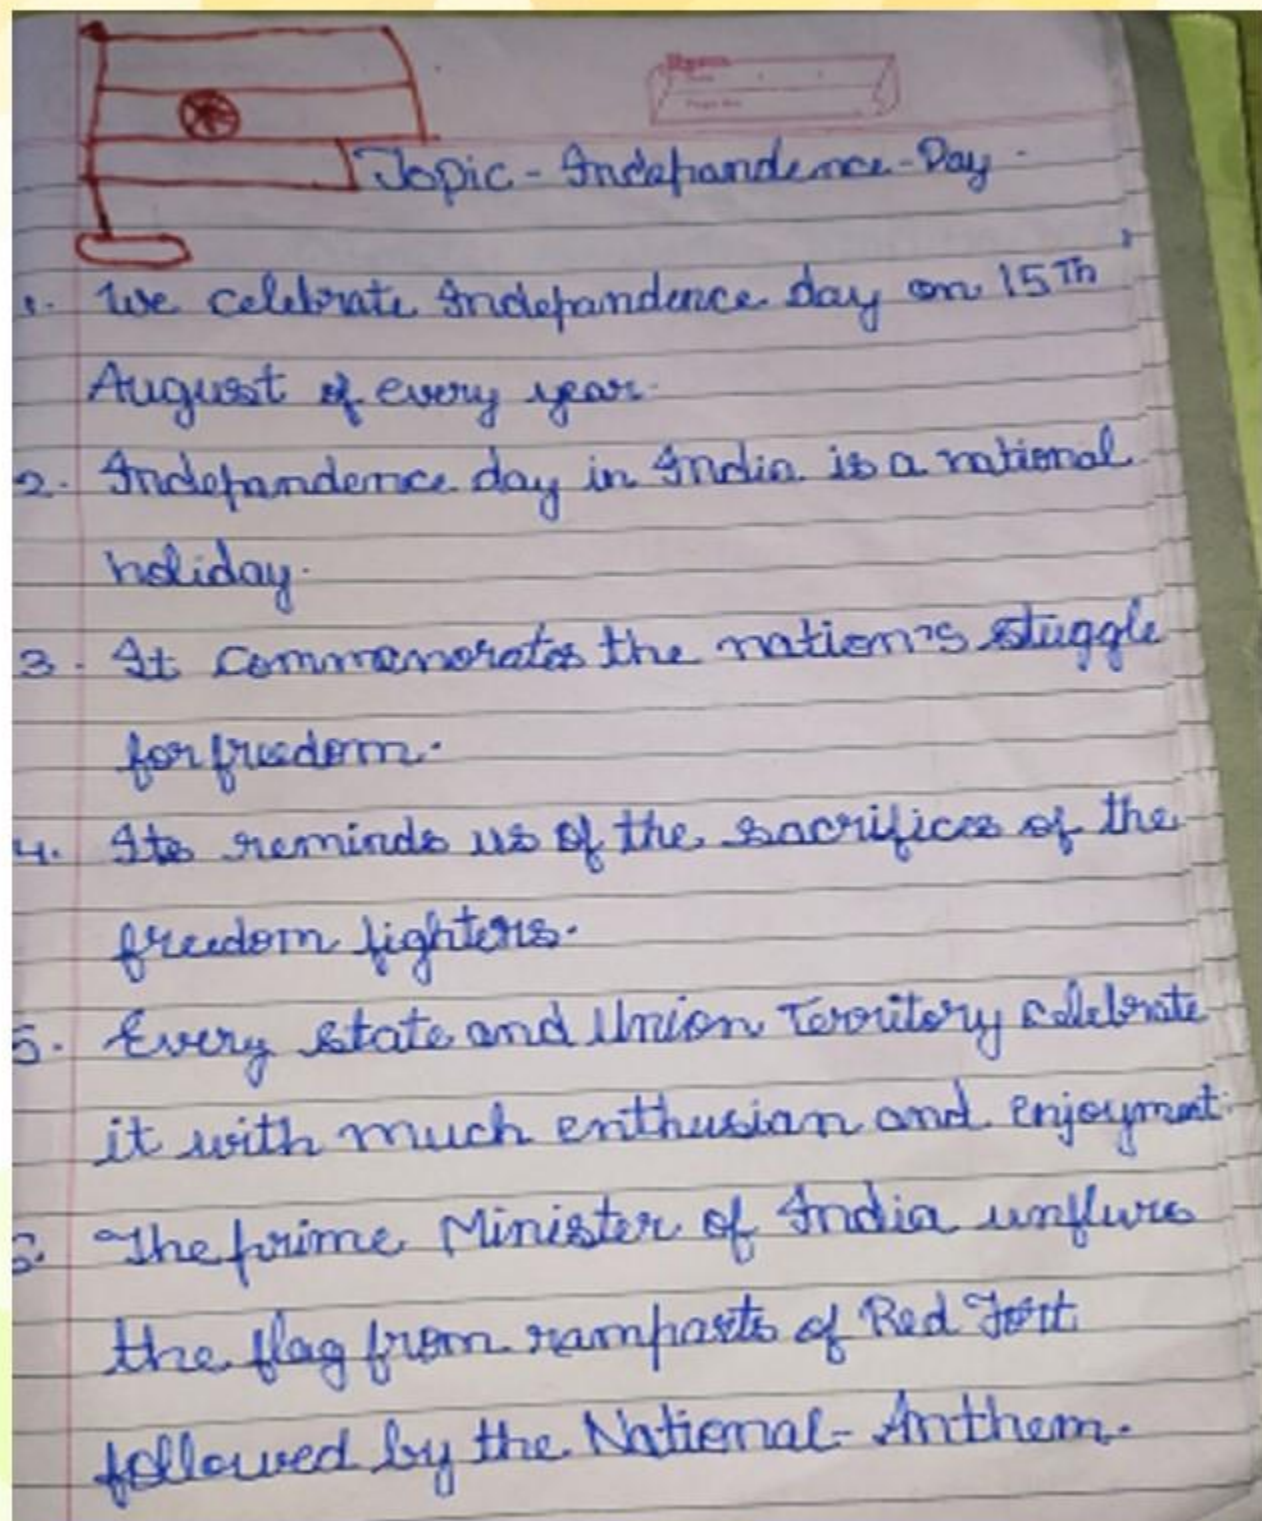 Topic - Indepandence - Day
1. We celebrate Indepandence day on 15Th
August of every year.
2. Indepandence day in India is a national
holiday.
3. It commemorates the nation's stuggle
for freedom.
4. Its reminds us of the sacrifices of the
freedom fighters.
5. Every state and Union Territory celebrate
it with much enthusian and enjoyment.
6. The prime Minister of India unflurs
the flag from ramparts of Red Fort
followed by the National- Anthem.